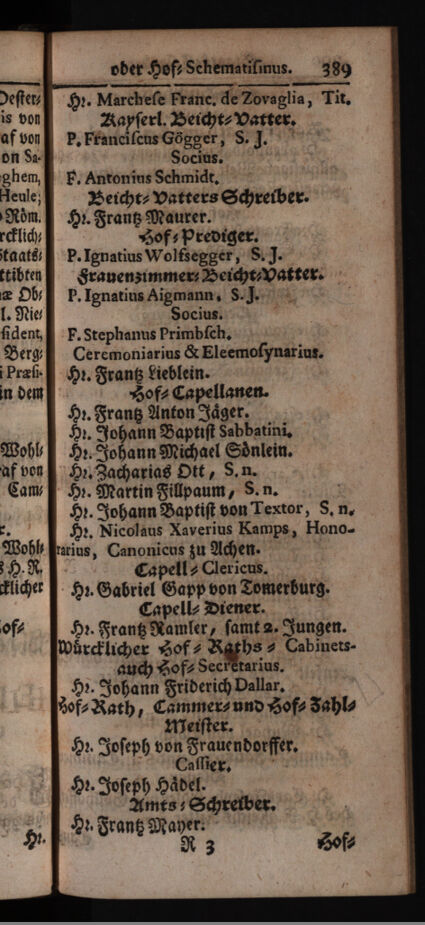 Oester-
is von
af von
on Sa-
eghem,
Heule;
Röm.
rcklich-
Staats-
ttibten
næ Ob-
l. Nie-
sident,
Berg-
i Præsi-
in dem
Wohl-
af von
Cam-
r.
Wohl-
s H. R.
cklicher
Hof-
Hr.
oder Hof-Schematismus. 389
Hr. Marchese Franc. de Zovaglia, Tit.
Kayserl. Beicht-Vatter.
P. Franciscus Gögger, S. J.
Socius.
F. Antonius Schmidt.
Beicht-Vatters Schreiber.
Hr. Frantz Maurer.
Hof-Prediger.
P. Ignatius Wolfsegger, S. J.
Frauenzimmer-Beicht-Vatter.
P. Ignatius Aigmann, S. J.
Socius.
F. Stephanus Primbsch.
Ceremoniarius & Eleemosynarius.
Hr. Frantz Lieblein.
Hof-Capellanen.
Hr. Frantz Anton Jäger.
Hr. Johann Baptist Sabbatini.
Hr. Johann Michael Sönlein.
Hr. Zacharias Ott, S. n.
Hr. Martin Fillpaum, S. n.
Hr. Johann Baptist von Textor, S. n.
Hr. Nicolaus Xaverius Kamps, Hono-
rarius, Canonicus zu Achen.
Capell-Clericus.
Hr. Gabriel Gapp von Tomerburg.
Capell-Diener.
Hr. Frantz Ramler, samt 2. Jungen.
Würcklicher Hof-Raths-Cabinets-
auch Hof-Secretarius.
Hr. Johann Friderich Dallar.
Hof-Rath, Cammer- und Hof-Zahl-
Meister.
Hr. Joseph von Frauendorffer.
Cassier.
Hr. Joseph Hädel.
Amts-Schreiber.
Hr. Frantz Mayer.
R 3 Hof-